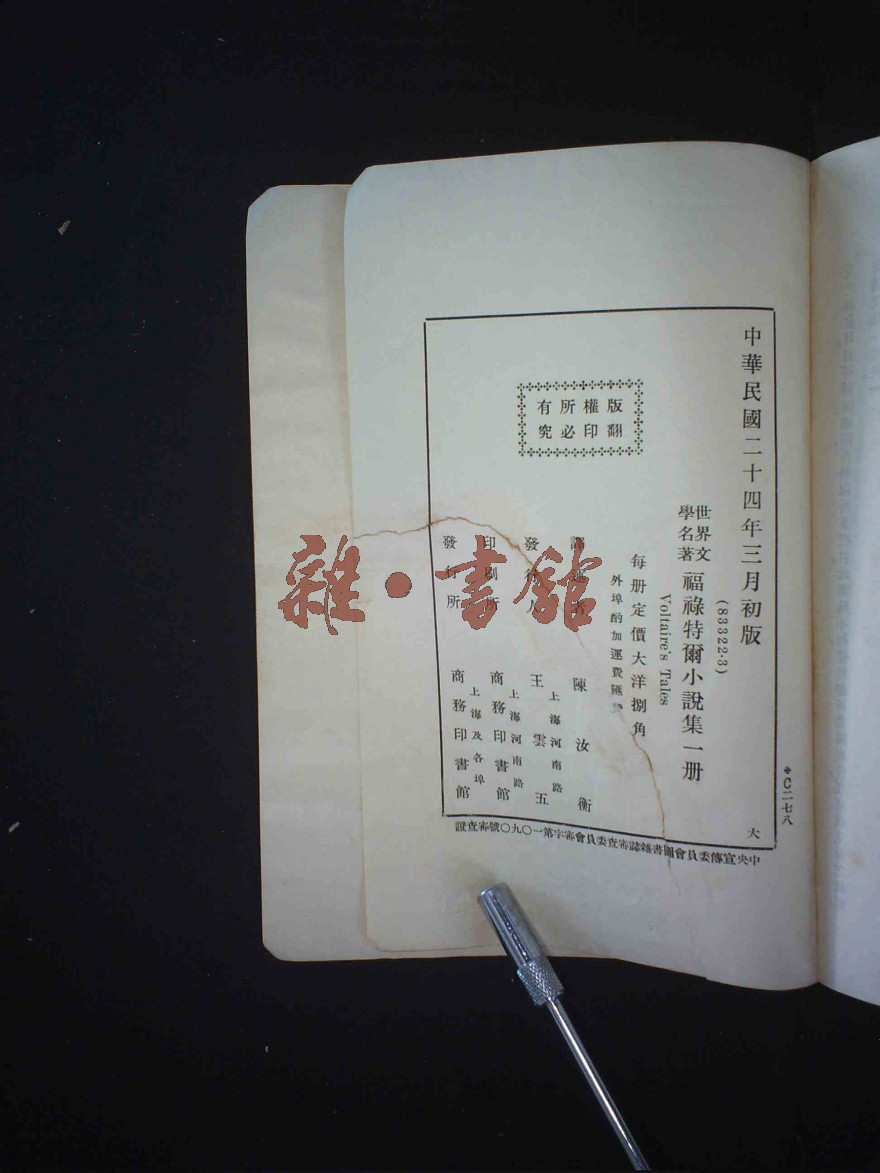 中華民國二十四年三月初版
(83322·3)
世界文學名著 福祿特爾小說集一册
Voltaire's Tales
每册定價大洋捌角
外埠酌加運費匯
版權所有
翻印必究
譯述者 陳汝衡
發行人 王雲五
上海河南路
印刷所 商務印書館
上海河南路
發行所 商務印書館
上海及各埠
大
中央宣傳委員會圖書雜誌審查委員會審字第一〇九〇號審查證
C二七八
雜·書館